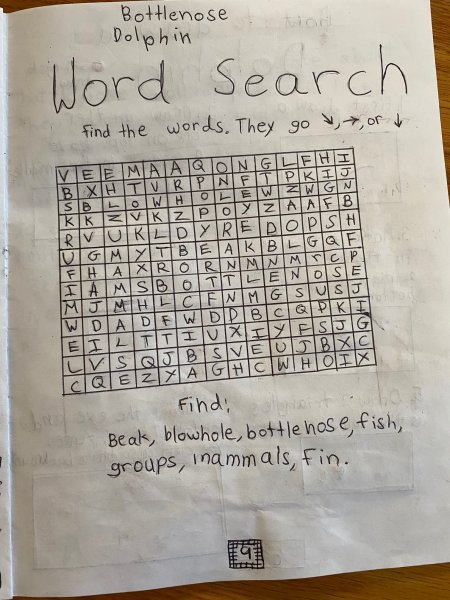 Bottlenose
Dolphin
Word Search
Find the words. They go ↘, →, or ↓
V E E M A A Q O N G L F H I
B X H T V R P N F T P K I J
S B L O W H O L E W Z W G N
K K Z V K Z P O Y Z A A F B
R V U K L D Y R E D O D S H
U G M Y T B E A K B L G Q F
F H A X R O R N M N M r C P
I A M S B O T T L E N O S E
M J M H L C F N M G S U S J
W D A D F W D D B C Q P K I
E I L T T I U X I Y F S J G
L V S Q J B S V E U J B X C
C Q E Z Y A G H C W H O I X
Find:
Beak, blowhole, bottlenose, fish,
groups, mammals, fin.
9